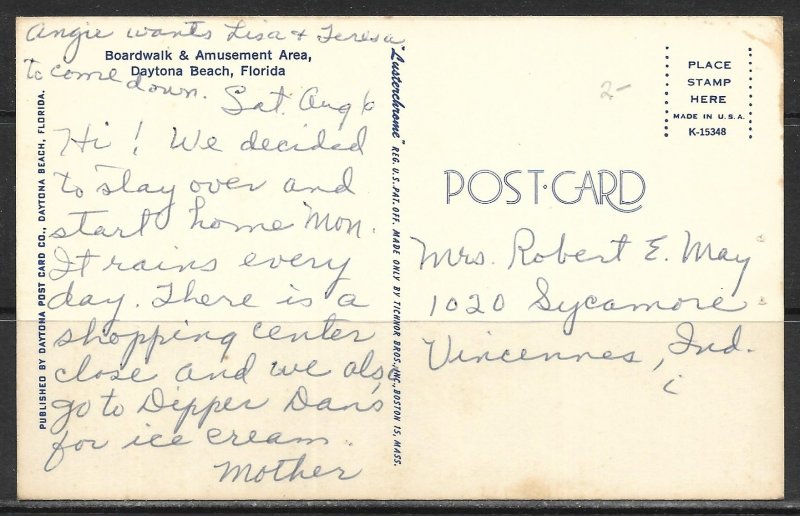 Angie wants Lisa & Teresa
to come down.
Boardwalk & Amusement Area,
Daytona Beach, Florida
Sat. Aug 6
Hi! We decided
to stay over and
start home Mon.
It rains every
day. There is a
shopping center
close and we also
go to Dipper Dan's
for ice cream.
Mother
PUBLISHED BY DAYTONA POST CARD CO., DAYTONA BEACH, FLORIDA.
"Lusterchrome" REG. U.S. PAT. OFF. MADE ONLY BY TICHNOR BROS., INC., BOSTON 15, MASS.
2-
PLACE
STAMP
HERE
MADE IN U.S.A.
K-15348
POST·CARD
Mrs. Robert E. May
1020 Sycamore
Vincennes, Ind.